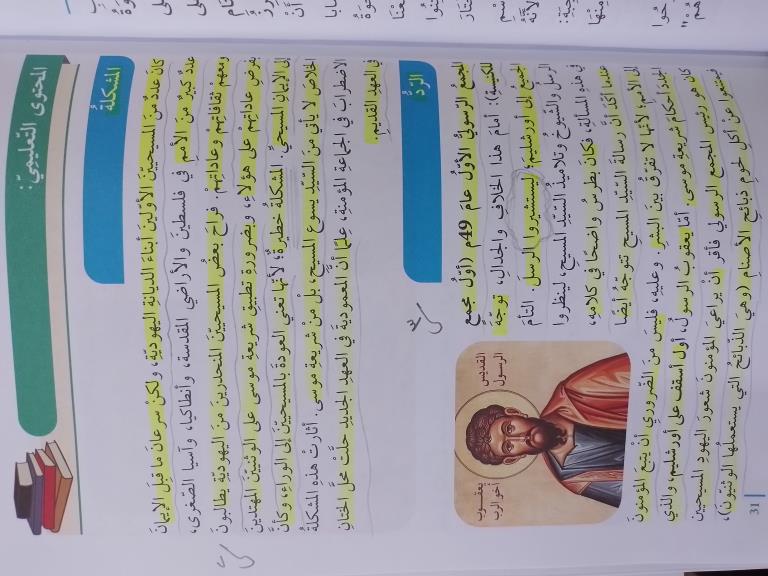 المحتوى التّعليميّ:
المشكلةُ
كانَ عددٌ منَ المسيحيّينَ الأوّلينَ أبناءَ الديانةِ اليهوديّةِ، ولكن سرعانَ ما قَبِلَ الإيمانَ
عددٌ كبيرٌ منَ الأممِ في فلسطينَ والأراضي المقدسةِ، وأنطاكيا، وآسيا الصّغرى،
ومعهم ثقافاتِهِمْ وعاداتِهِمْ. فراحَ بعضُ المسيحيّينَ المتحدّرينَ من اليهوديّةِ يطالبونَ
بفرضِ عاداتِهِمْ على هؤلاءِ، وبضرورةِ تطبيقِ شريعةِ موسى على الوثنيّينَ المهتدينَ
إلى الإيمانِ المسيحيِّ. المشكلةُ خطيرةٌ، لأنّها تعني العودةَ بالمسيحيّينَ إلى الوراءِ، وكأنَّ
الخلاصَ لا يأتي منَ السّيّدِ يسوعَ المسيحِ، بلْ منْ شريعةِ موسى. أثارتْ هذهِ المشكلةُ
الاضطرابَ في الجماعةِ المؤمنةِ، علمًا أنَّ المعموديةَ في العهدِ الجديدِ حلَّتْ محلَّ الختانِ
في العهدِ القديمِ.
الردُّ
المجمعُ الرسوليُّ الأوّلُ عامَ 49م (أوّلُ مجمعٍ
للكنيسةِ): أمامَ هذا الخلافِ والجدالِ، توجّهَ
الجميعُ إلى أورشليمَ ليستشيروا الرسلَ. التأمَ
الرسلُ والشيوخُ وتلاميذُ السّيّدِ المسيحِ، لينظروا
في هذهِ المسألةِ، فكانَ بطرسُ واضحًا في كلامِهِ،
عندما أكّدَ أنَّ رسالةَ السّيّدِ المسيحِ تتوجّهُ أيضًا
إلى الأممِ، لأنّها لا تفرّقُ بينَ البشرِ. وعليهِ، فليسَ منَ الضّروريِّ أنْ يتبعَ المؤمنونَ
الجددُ أحكامَ شريعةِ موسى. أمّا يعقوبُ الرسولُ، أوّلُ أسقفٍ على أورشليمَ، والذي
كانَ هو رئيسَ المجمعِ الرسوليِّ فأقرَّ أنْ يراعيَ المؤمنونَ شعورَ اليهودِ المسيحيينَ
فيمتنعوا عنْ أكلِ لحومِ ذبائحِ الأصنامِ (وهيَ الذبائحُ التي يستعملُها الوثنيّونَ)،
القديس
الرسول
يعقوب
أخو الرب
31